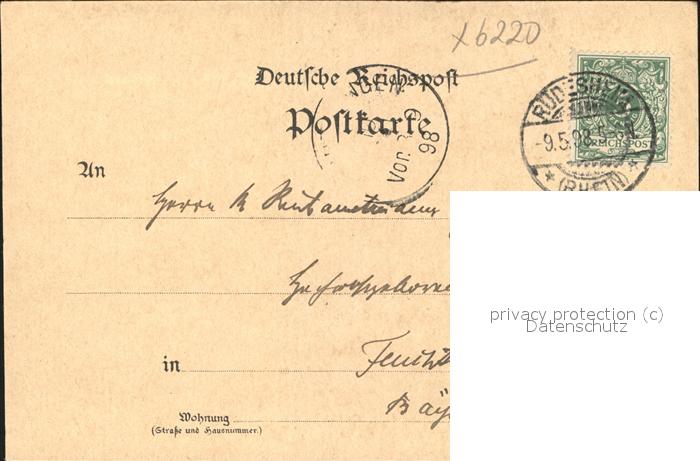 x6220
Deutsche Reichspost
Postkarte
REICHSPOST
RÜDESHEIM
-9.5.98 5-6N.
* (RHEIN) *
NGEN
Vor.
98
An
Herrn K Rentamtmann
privacy protection (c)
Datenschutz
in
Feucht
Bay
Wohnung
(Straße und Hausnummer.)